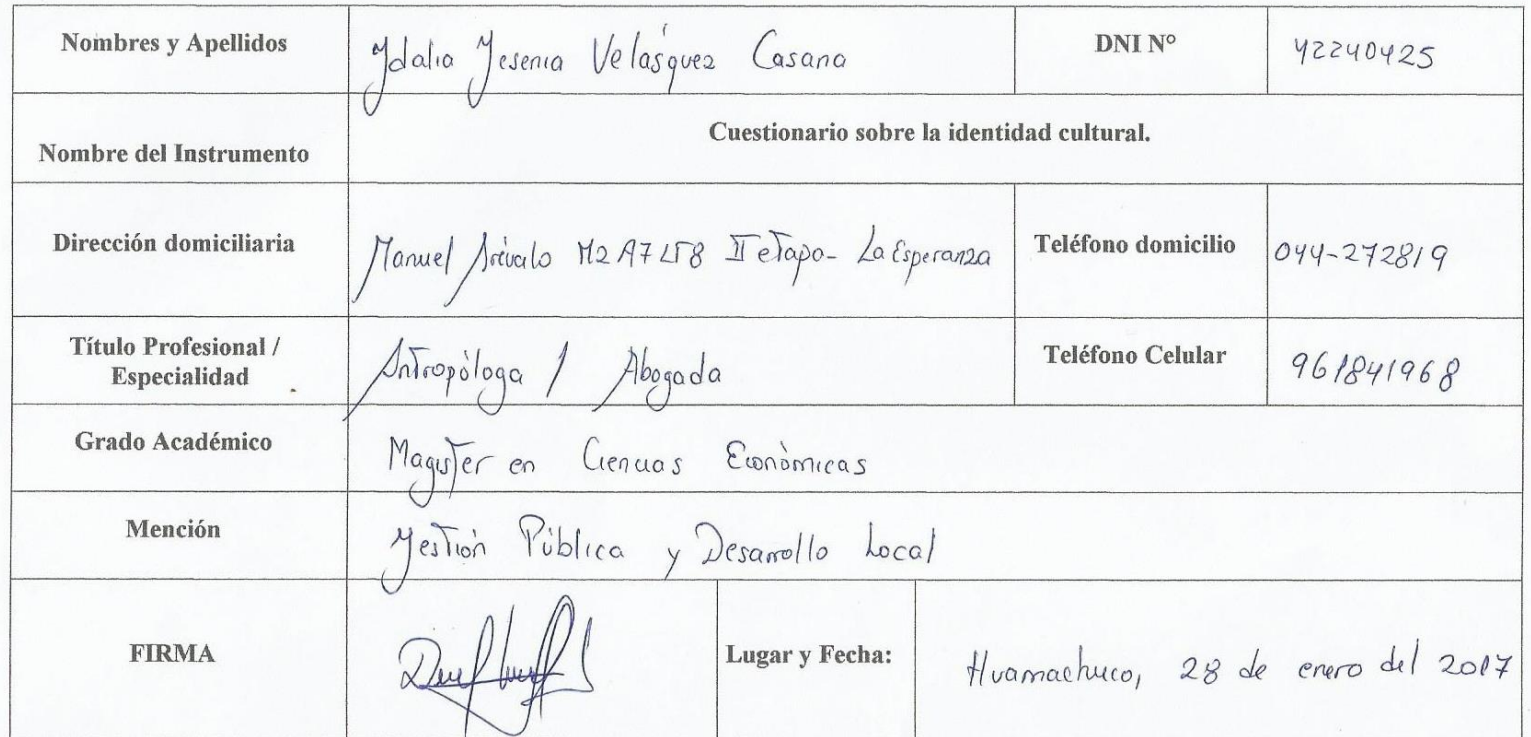 Nombres y Apellidos Ydalia Yesenia Velásquez Casana DNI N° 42240425
Nombre del Instrumento Cuestionario sobre la identidad cultural.
Dirección domiciliaria Manuel Arévalo Mz A7 LT8 II etapa- La Esperanza Teléfono domicilio 044-272819
Título Profesional /
Especialidad Antropóloga / Abogada Teléfono Celular 961841968
Grado Académico Magister en Ciencias Económicas
Mención Gestión Pública y Desarrollo Local
FIRMA Lugar y Fecha: Huamachuco, 28 de enero del 2017